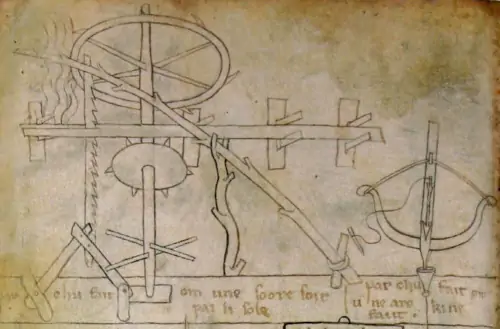 chu fait om une soore soir
par li sole
par chu fait
u ne arc kine
faut .